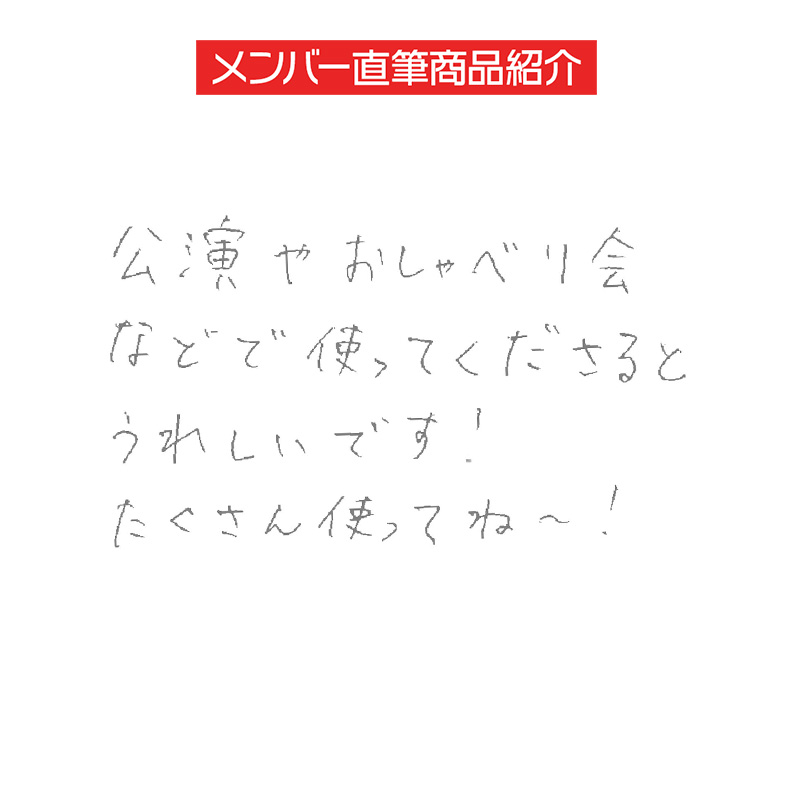 メンバー直筆商品紹介
公演やおしゃべり会
などで使ってくださると
うれしいです!
たくさん使ってね〜!